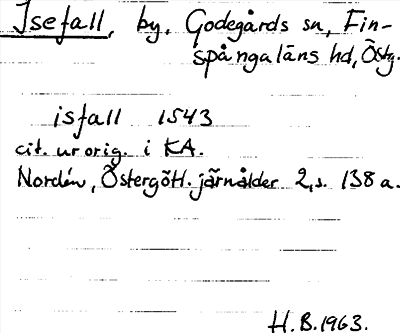 Isefall, by, Godegårds sn, Fin-
spångaläns hd, Östg.
isfall 1543
cit. ur orig. i KA.
Nordén, Östergötl. järnålder 2, s. 138 a.
H.B. 1963.